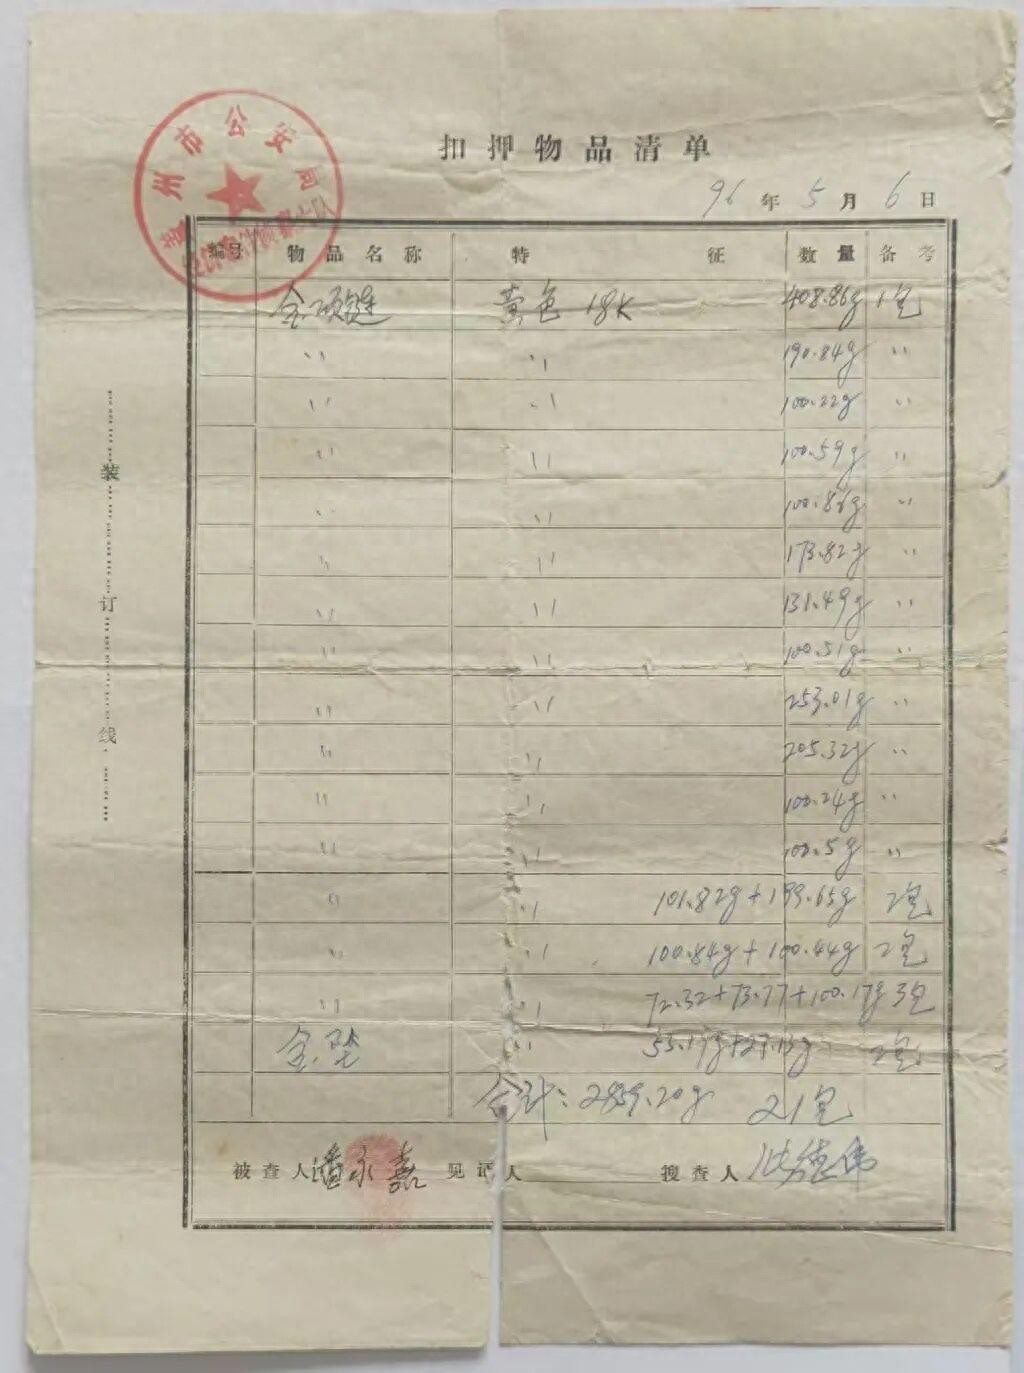 州市公安局
扣押物品清单
96年5月6日
编号 物品名称 特征 数量 备考
金项链 黄色 18K 408.86g 1包
〃 〃 190.84g 〃
〃 〃 100.22g 〃
〃 〃 100.59g 〃
〃 〃 100.86g 〃
〃 〃 173.82g 〃
〃 〃 131.49g 〃
〃 〃 100.51g 〃
〃 〃 253.01g 〃
〃 〃 205.32g 〃
〃 〃 100.24g 〃
〃 〃 100.5g 〃
〃 〃 101.82g+199.65g 2包
〃 〃 100.84g+100.44g 2包
〃 〃 72.32+73.77+100.17g 3包
金坠 〃 2包
合计:2859.20g 21包
被查人 潘永嘉 见证人 搜查人
装订线